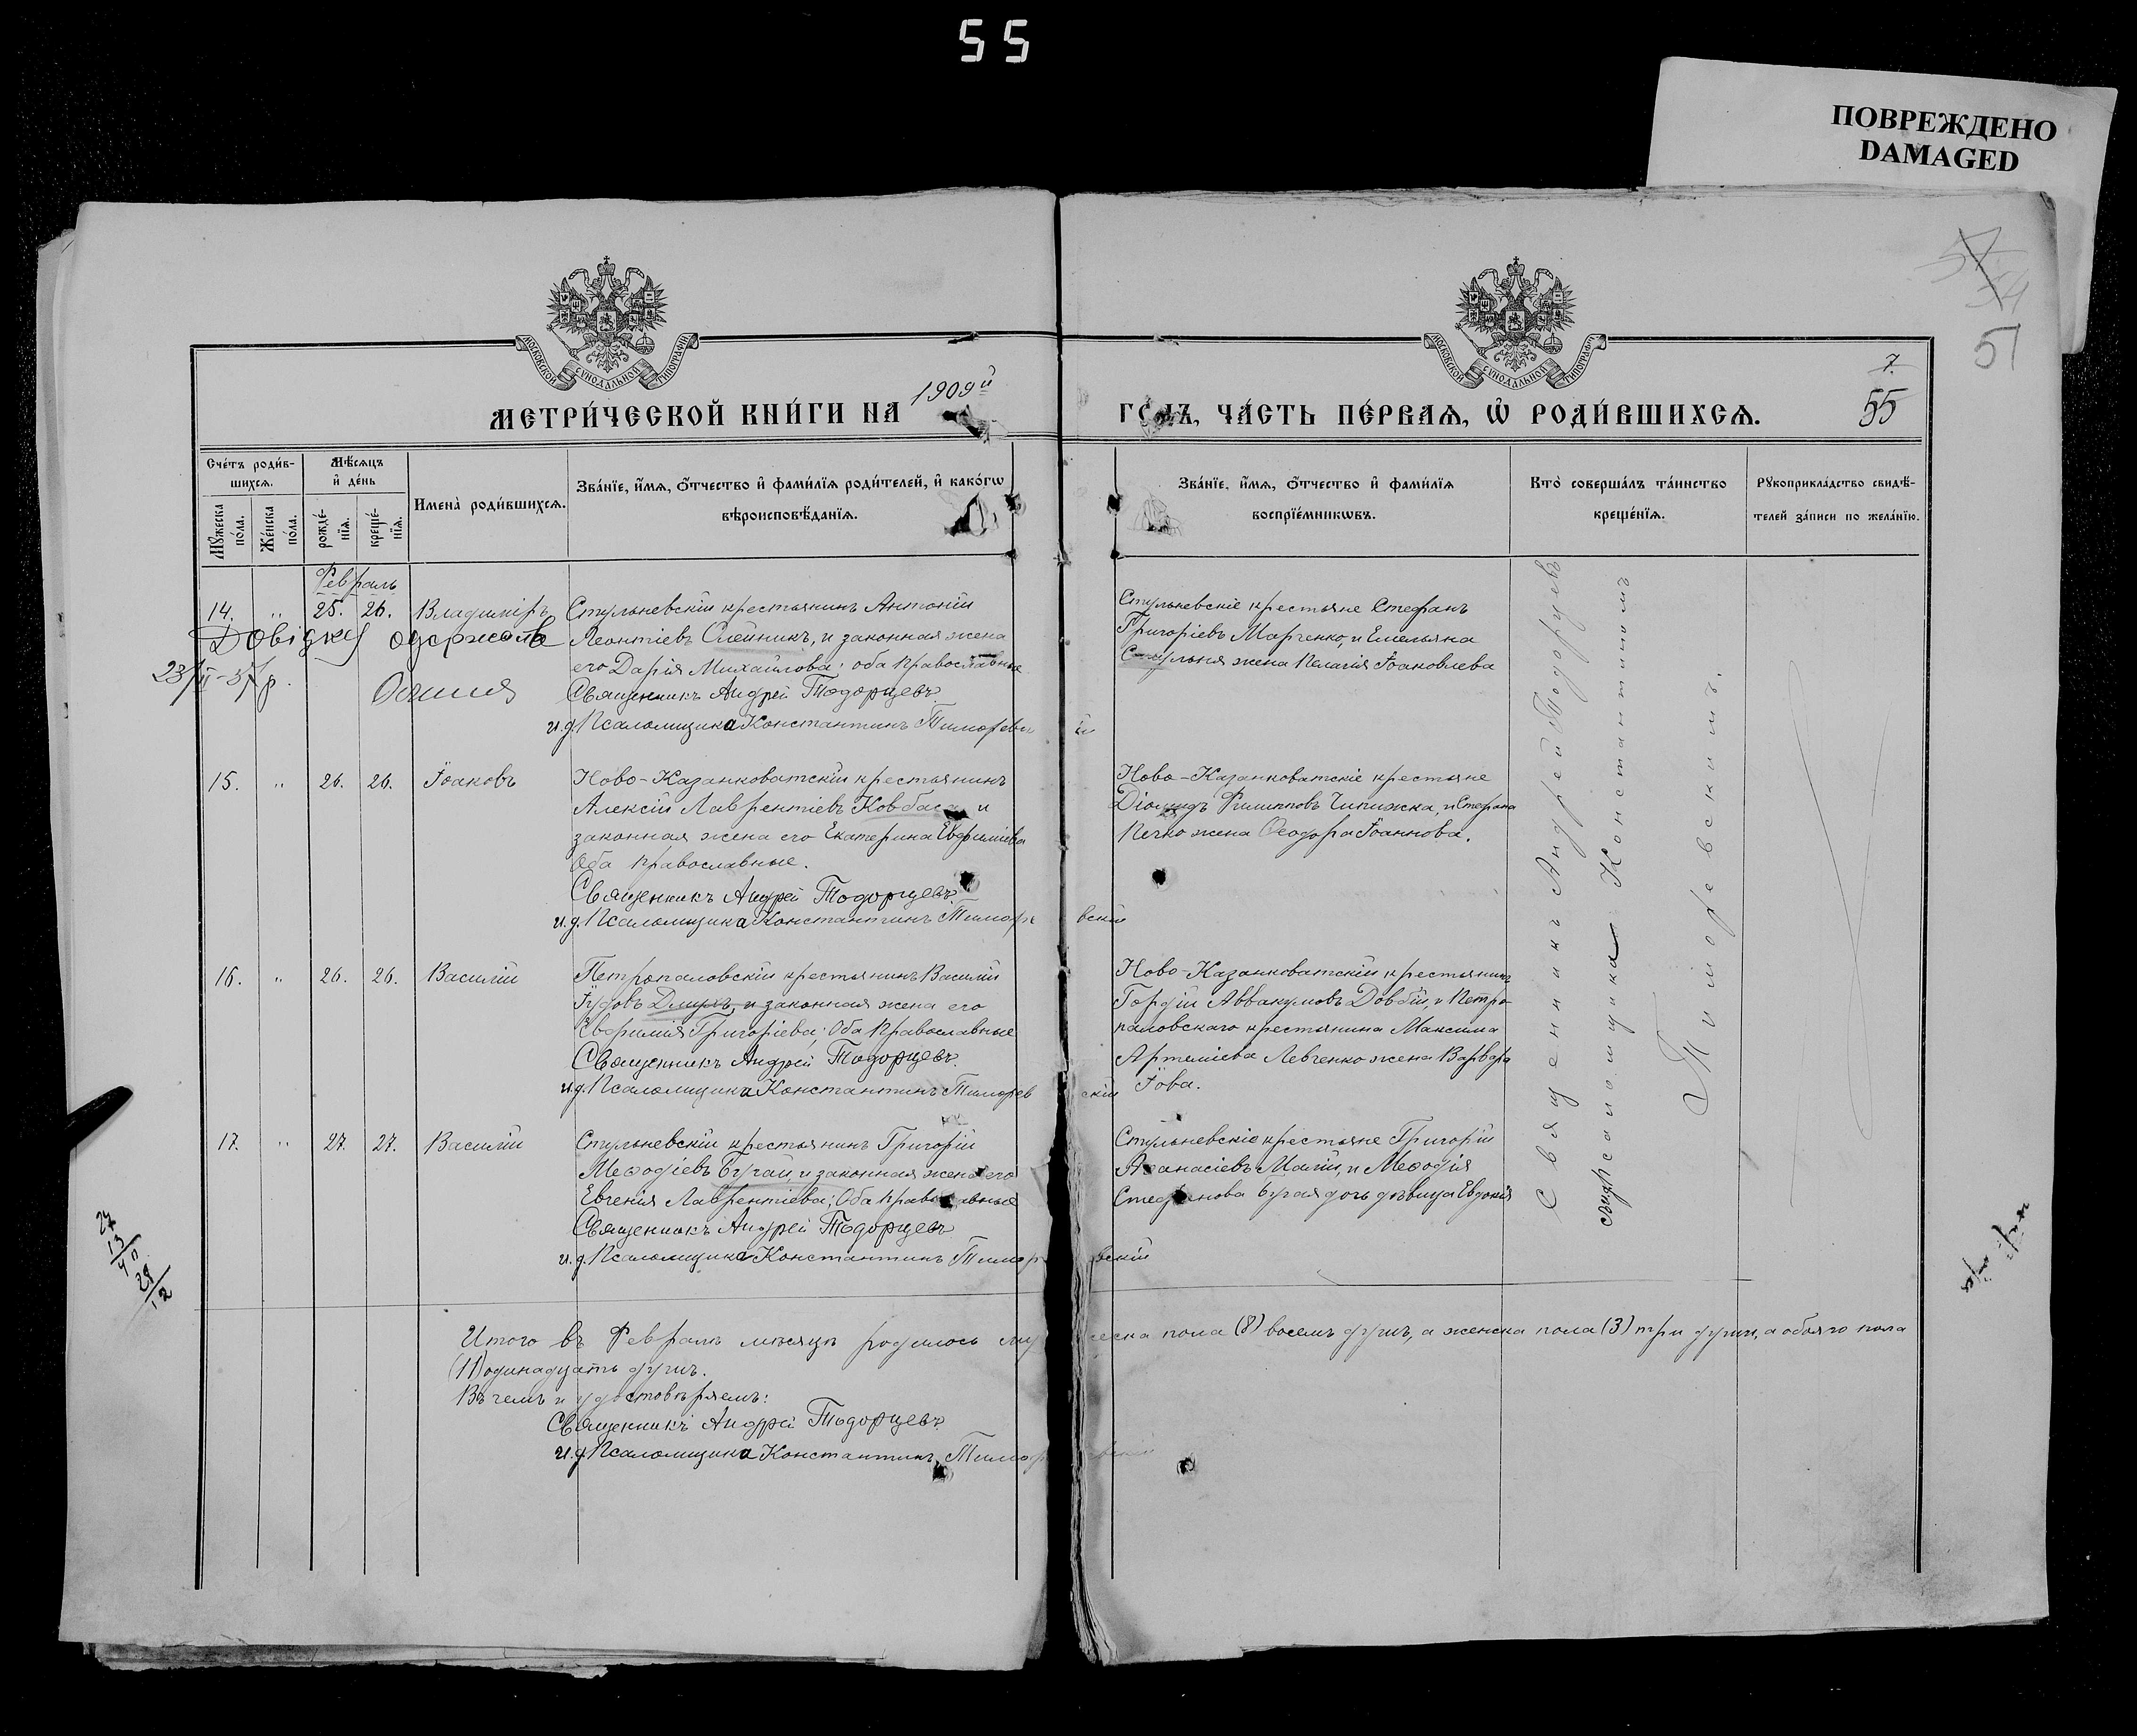 55
ПОВРЕЖДЕНО
DAMAGED
54
51
7.
55
МОСКОВСКОЙ СѴНОДАЛЬНОЙ ТИПОГРАФІИ
МОСКОВСКОЙ СѴНОДАЛЬНОЙ ТИПОГРАФІИ
МЕТРИ́ЧЕСКОЙ КНИ́ГИ НА 1909й ГОДЪ, ЧА́СТЬ ПЕ́РВАѦ, Ѡ҆ РОДИ́ВШИХСѦ.
Сче́тъ роди́в-
шихсѧ.
Мѹ́жеска
по́ла.
Же́нска
по́ла.
Мѣ́сѧцъ
и҆ де́нь
рожде́-
нїѧ.
креще́-
нїѧ.
Имена̀ роди́вшихсѧ.
Зва́нїе, и҆́мѧ, ѻ҆́тчество и҆ фами́лїѧ роди́телей, и҆ како́гѡ
вѣроисповѣ́данїѧ.
Зва́нїе, и҆́мѧ, ѻ҆́тчество и҆ фами́лїѧ
воспрїе́мникѡвъ.
Кто̀ соверша́лъ та́инство
креще́нїѧ.
Рѹкоприкла́дство свидѣ́-
телей за́писи по жела́нїю.
Февраль
14. " 25. 26. Владимiръ
Стульневскiй крестьянинъ Антонiй
Леонтiевъ Олейникъ, и законная жена
его Дарiя Михайлова; оба православные
Священникъ Андрей Тодорцевъ.
и.д. Псаломщика Константинъ Тиморевскiй
Довідку одержав
23/II-37р.
Стульневскiе крестьяне Стефанъ
Григорiевъ Марченко, и Емельяна
Стульня жена Пелагiя Iоаковлева
15. " 26. 26. Iоаковъ
Ново-Казанковатскiй крестьянинъ
Алексiй Лаврентiевъ Ковбаса и
законная жена его Екатерина Евфимiева
Оба православные.
Священникъ Андрей Тодорцевъ.
и.д. Псаломщика Константинъ Тиморевскiй
Ново-Казанковатскiе крестьяне
Дiомидъ Филипповъ Чипижка, и Стефана
Печко жена Ѳеодора Iоаннова.
16. " 26. 26. Василiй
Петропаловскiй крестьянинъ Василiй
Iудовъ Дмухъ, и законная жена его
Евфимiя Григорiева; Оба Православные
Священникъ Андрей Тодорцевъ.
и.д. Псаломщика Константинъ Тиморевскiй
Ново-Казанковатскiй крестьянинъ
Гордiй Аввакумовъ Довбiй, и Петро-
паловскаго крестьянина Максима
Артемiева Левченко жена Варвара
Iова.
17. " 27. 27. Василiй
Стульневскiй крестьянинъ Григорiй
Меѳодiевъ Бугай, и законная жена его
Евгенiя Лаврентiева; Оба православные
Священникъ Андрей Тодорцевъ
и.д. Псаломщика Константинъ Тиморевскiй
Стульневскiе крестьяне Григорiй
Аѳанасiевъ Малiй, и Меѳодiя
Стефанова Бугая дочь дѣвица Евдокiя
Священникъ Андрей Тодорцевъ
Псаломщика Константиномъ
Тиморевскимъ.
Итого въ Февралѣ мѣсяцѣ родилось мужеска пола (8) восемь душъ, а женска пола (3) три души, а обоего пола
(11) одинадцать душъ.
Въ чемъ и удостовѣряемъ:
Священникъ Андрей Тодорцевъ.
и.д. Псаломщика Константинъ Тиморевскiй
27
13
40
28
12